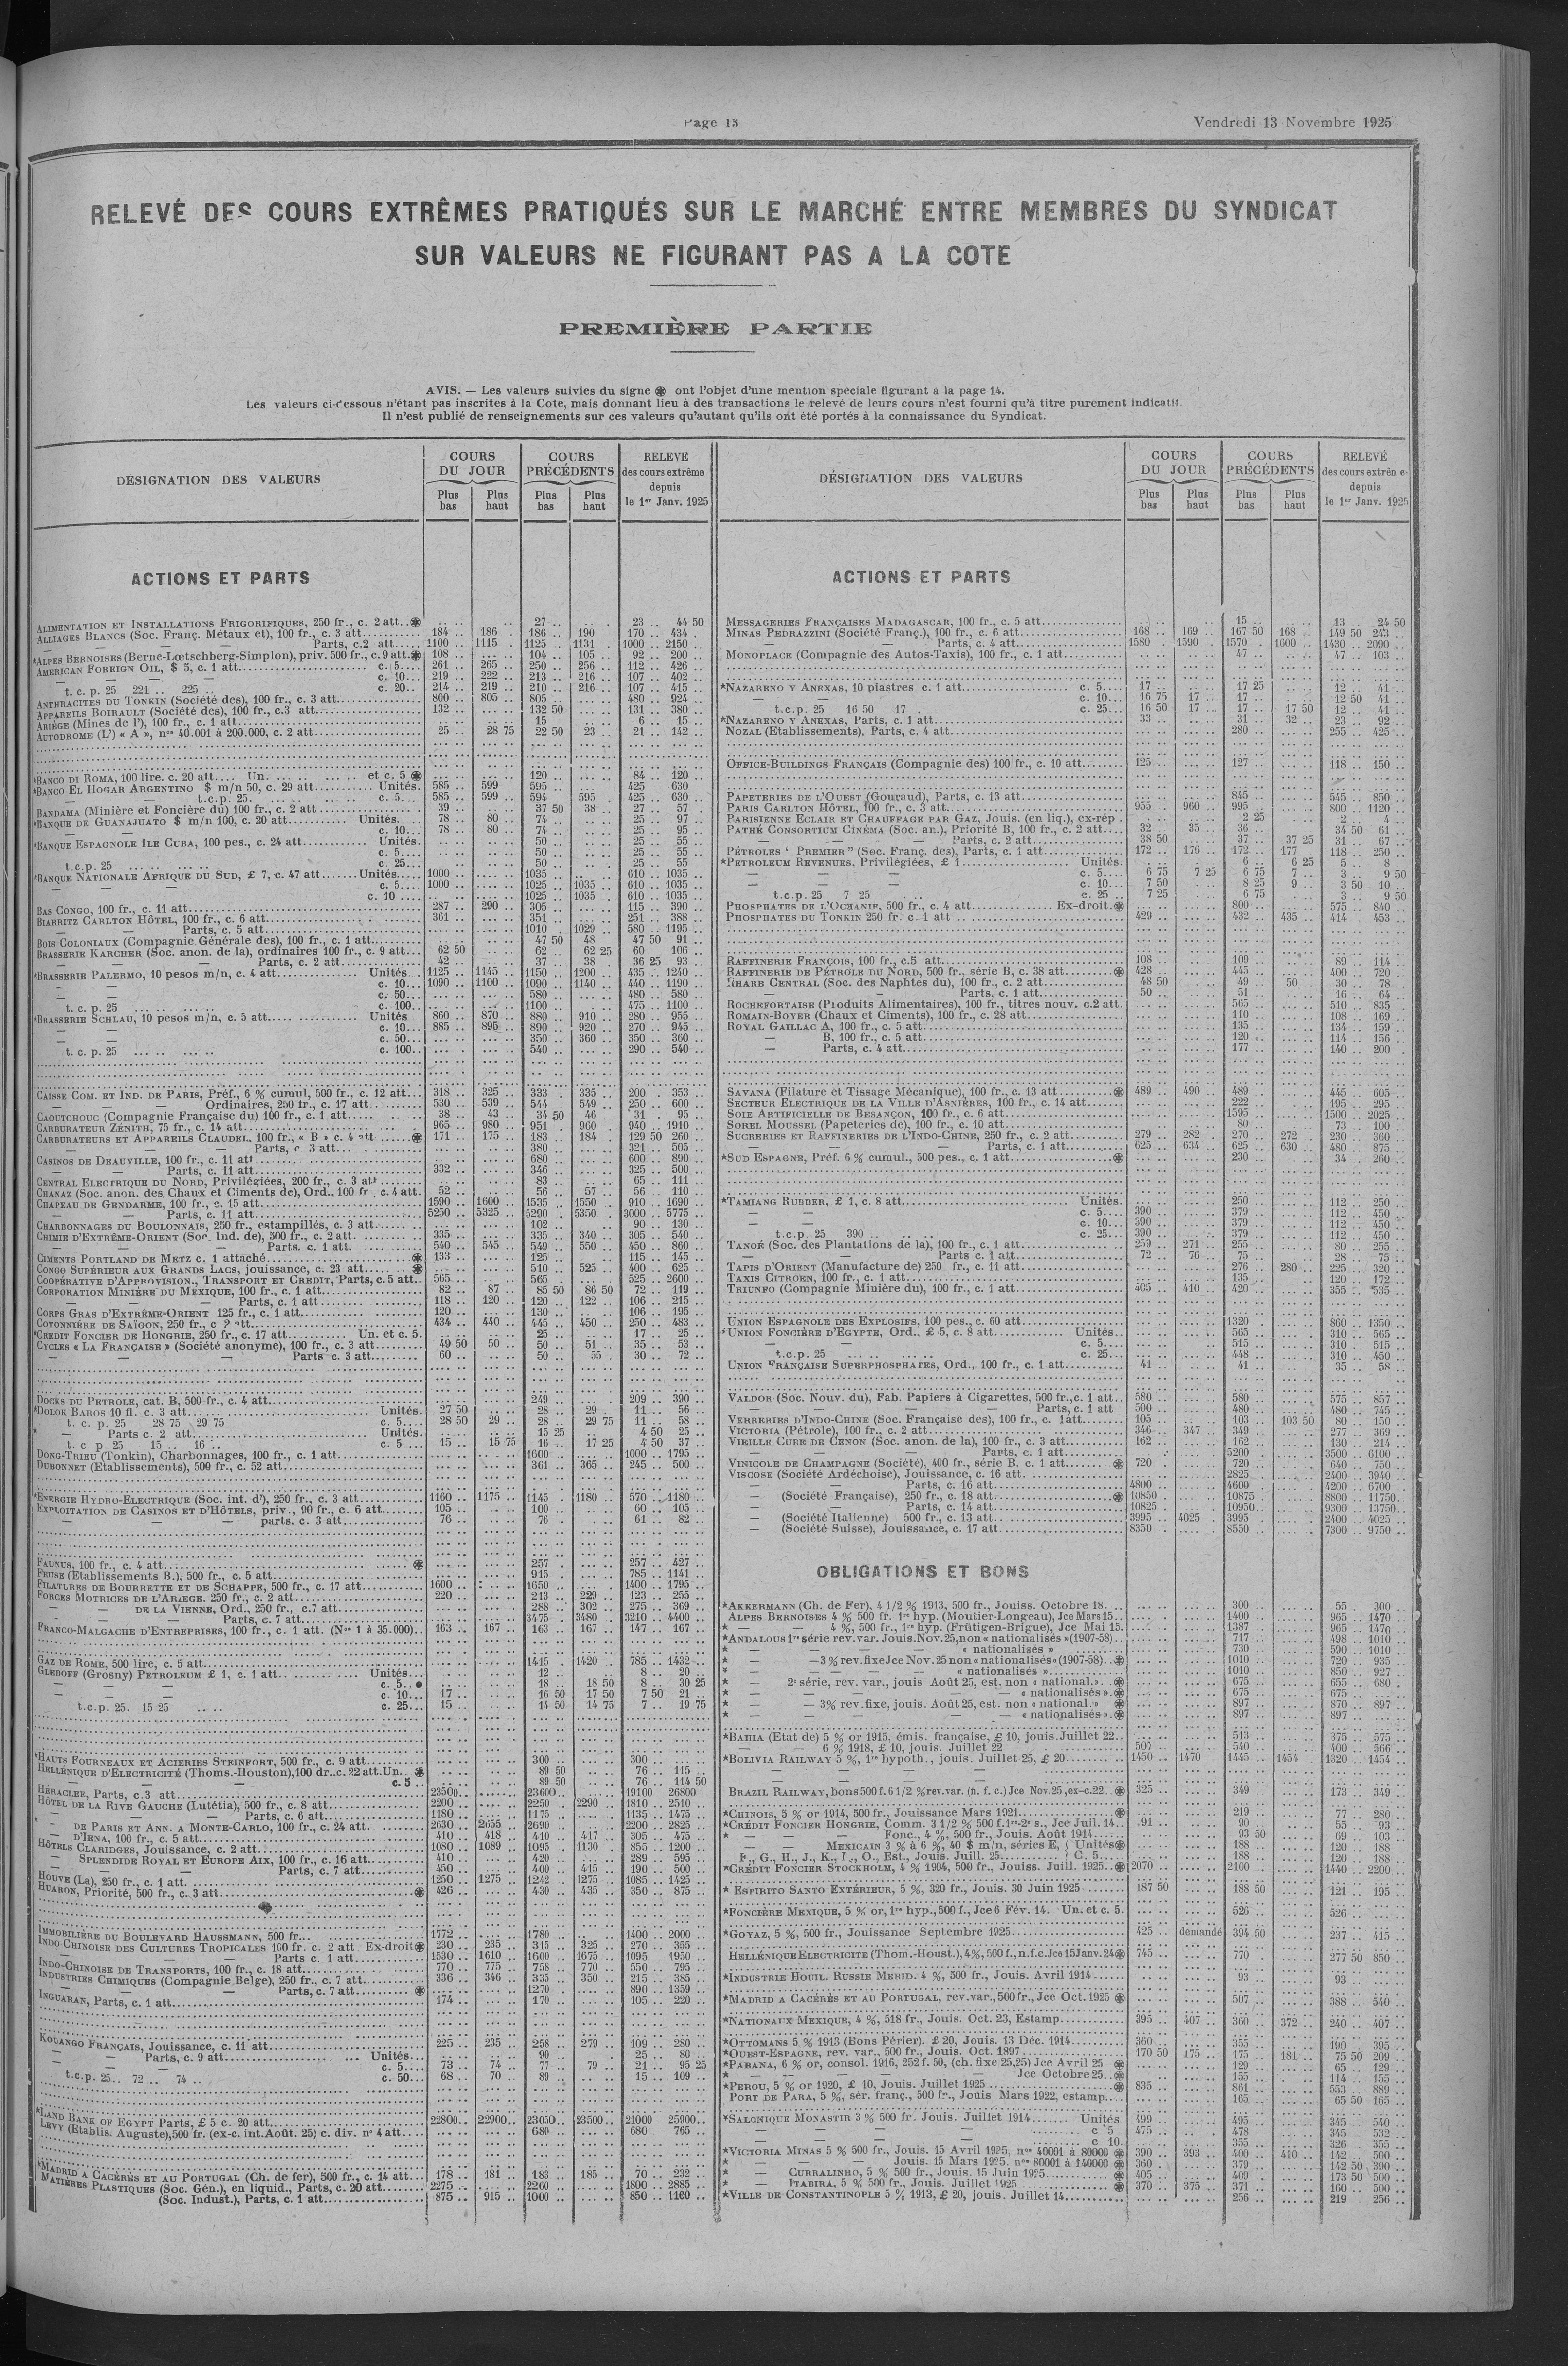 Page 13
Vendredi 13 Novembre 1925
RELEVÉ DES COURS EXTRÊMES PRATIQUÉS SUR LE MARCHÉ ENTRE MEMBRES DU SYNDICAT
SUR VALEURS NE FIGURANT PAS A LA COTE
PREMIÈRE PARTIE
AVIS. — Les valeurs suivies du signe ⊛ ont l'objet d'une mention spéciale figurant à la page 14.
Les valeurs ci-dessous n'étant pas inscrites à la Cote, mais donnant lieu à des transactions le relevé de leurs cours n'est fourni qu'à titre purement indicatif.
Il n'est publié de renseignements sur ces valeurs qu'autant qu'ils ont été portés à la connaissance du Syndicat.
DESIGNATION DES VALEURS
COURS DU JOUR
Plus bas Plus haut
COURS PRÉCÉDENTS
Plus bas Plus haut
RELEVE des cours extrême depuis le 1er Janv. 1925
ACTIONS ET PARTS
ALIMENTATION ET INSTALLATIONS FRIGORIFIQUES, 250 fr., c. 2 att..⊛ 27 23 44 50
ALLIAGES BLANCS (Soc. Franç. Métaux et), 100 fr., c. 3 att 184 186 186 190 170 434
— — — Parts, c.2 att 1100 1115 1125 1131 1000 2150
*ALPES BERNOISES (Berne-Lœtschberg-Simplon), priv. 500 fr., c. 9 att.⊛ 108 104 105 92 200
AMERICAN FOREIGN OIL, $ 5, c. 1 att c. 5 261 265 250 256 112 426
— — — c. 10 219 222 213 216 107 402
t. c. p. 25 221 225 c. 20 214 219 210 216 107 415
ANTHRACITES DU TONKIN (Société des), 100 fr., c. 3 att 800 805 805 480 924
APPAREILS BOIRAULT (Société des), 100 fr., c.3 att 132 132 50 131 380
ARIÈGE (Mines de l'), 100 fr., c. 1 att 15 6 15
AUTODROME (L') « A », nos 40.001 à 200.000, c. 2 att 25 28 75 22 50 23 21 142
*BANCO DI ROMA, 100 lire. c. 20 att Un. et c. 5 ⊛ 120 84 120
*BANCO EL HOGAR ARGENTINO $ m/n 50, c. 29 att Unités. 585 599 595 425 630
— — t.c.p. 25. c. 5 585 599 594 595 425 630
BANDAMA (Minière et Foncière du) 100 fr., c. 2 att 39 37 50 38 27 57
*BANQUE DE GUANAJUATO $ m/n 100, c. 20 att Unités. 78 80 74 25 97
— — c. 10 78 80 74 25 95
*BANQUE ESPAGNOLE ILE CUBA, 100 pes., c. 24 att Unités. 50 25 55
c. 5 50 25 55
t.c.p. 25 c. 25 50 25 55
*BANQUE NATIONALE AFRIQUE DU SUD, £ 7, c. 47 att Unités 1000 1035 610 1035
— — — c. 5 1000 1025 1035 610 1035
c. 10 1025 1035 610 1035
BAS CONGO, 100 fr., c. 11 att 287 290 305 115 390
BIARRITZ CARLTON HÔTEL, 100 fr., c. 6 att 361 351 251 388
— — Parts, c. 5 att 1010 1029 580 1195
BOIS COLONIAUX (Compagnie Générale des), 100 fr., c. 1 att 47 50 48 47 50 91
BRASSERIE KARCHER (Soc. anon. de la), ordinaires 100 fr., c. 9 att 62 50 62 62 25 60 106
— — Parts, c. 2 att 42 37 38 36 25 93
*BRASSERIE PALERMO, 10 pesos m/n, c. 4 att Unités 1125 1145 1150 1200 435 1240
— — c. 10 1090 1100 1090 1140 440 1190
— — c. 50 580 480 580
t. c. p. 25 c. 100 1100 475 1100
*BRASSERIE SCHLAU, 10 pesos m/n, c. 5 att Unités 860 870 880 910 280 955
c. 10 885 895 890 920 270 945
— — c. 50 350 360 350 360
t. c. p. 25 c. 100 540 290 540
CAISSE COM. ET IND. DE PARIS, Préf., 6 % cumul, 500 fr., c. 12 att 318 325 333 335 200 353
— — — Ordinaires, 250 fr., c. 17 att 530 539 544 549 250 600
CAOUTCHOUC (Compagnie Française du) 100 fr., c. 1 att 38 43 34 50 46 31 95
CARBURATEUR ZÉNITH, 75 fr., c. 14 att 965 980 951 960 940 1910
CARBURATEURS ET APPAREILS CLAUDEL, 100 fr., « B » c. 4 att ⊛ 171 175 183 184 129 50 260
— — Parts, c 3 att 380 321 505
CASINOS DE DEAUVILLE, 100 fr., c. 11 att 680 600 890
— — Parts, c. 11 att 332 346 325 500
CENTRAL ELECTRIQUE DU NORD, Privilégiées, 200 fr., c. 3 att 83 65 111
CHANAZ (Soc. anon. des Chaux et Ciments de), Ord., 100 fr , c. 4 att. 52 56 57 56 110
CHAPEAU DE GENDARME, 100 fr., c. 15 att 1590 1600 1535 1550 910 1690
— — Parts, c. 11 att 5250 5325 5290 5350 3000 5775
CHARBONNAGES DU BOULONNAIS, 250 fr., estampillés, c. 3 att 102 90 130
CHIMIE D'EXTRÊME-ORIENT (Soc. Ind. de), 500 fr., c. 2 att. 335 335 340 305 540
— — — Parts. c. 1 att. 540 545 549 550 450 860
CIMENTS PORTLAND DE METZ c. 1 attaché ⊛ 133 125 115 145
CONGO SUPÉRIEUR AUX GRANDS LACS, jouissance, c. 23 att ⊛ 510 525 400 625
COOPÉRATIVE D'APPROVISION., TRANSPORT ET CREDIT, Parts, c. 5 att. 565 565 525 2600
CORPORATION MINIÈRE DU MEXIQUE, 100 fr., c. 1 att 82 87 85 50 86 50 72 119
— — — Parts, c. 1 att 118 120 120 122 106 215
CORPS GRAS D'EXTRÊME-ORIENT 125 fr., c. 1 att 120 130 106 195
COTONNIÈRE DE SAÏGON, 250 fr., c ? att 434 440 445 450 250 483
*CREDIT FONCIER DE HONGRIE, 250 fr., c. 17 att Un. et c. 5. 25 17 25
CYCLES « LA FRANÇAISE » (Société anonyme), 100 fr., c. 3 att 49 50 50 50 51 35 53
— — — Parts c. 3 att 60 50 55 30 72
DOCKS DU PETROLE, cat. B, 500 fr., c. 4 att 249 209 390
*DOLOK BAROS 10 fl. c. 3 att Unités. 27 50 28 29 11 56
t. c. p. 25 28 75 29 75 c. 5 28 50 29 28 29 75 11 58
* — Parts c. 2 att Unités. 15 25 4 50 25
t. c p 25 15 16 c. 5 15 15 75 16 17 25 4 50 37
DONG-TRIEU (Tonkin), Charbonnages, 100 fr., c. 1 att 1600 1000 1795
DUBONNET (Etablissements), 500 fr., c. 52 att 361 365 245 500
*ENERGIE HYDRO-ELECTRIQUE (Soc. int. d'), 250 fr., c. 3 att 1160 1175 1145 1180 570 1180
EXPLOITATION DE CASINOS ET D'HÔTELS, priv., 90 fr., c. 6 att 105 100 60 105
— — — parts. c. 3 att 76 76 61 82
FAUNUS, 100 fr., c. 4 att ⊛ 257 257 427
FEUSE (Etablissements B.), 500 fr., c. 5 att 915 785 1141
FILATURES DE BOURRETTE ET DE SCHAPPE, 500 fr., c. 17 att 1600 1650 1400 1795
FORCES MOTRICES DE L'ARIEGE. 250 fr., c. 2 att 220 213 229 123 255
— — DE LA VIENNE, Ord., 250 fr., c.7 att 288 302 275 369
— — Parts, c. 7 att 3475 3480 3210 4400
FRANCO-MALGACHE D'ENTREPRISES, 100 fr., c. 1 att. (Nos 1 à 35.000) 163 167 163 167 147 167
GAZ DE ROME, 500 lire, c. 5 att 1415 1420 785 1432
GLEBOFF (Grosny) PETROLEUM £ 1, c. 1 att Unités 12 8 20
— — — c. 5 18 18 50 8 30 25
— — — c. 10 17 16 50 17 50 7 50 21
t.c.p. 25. 15 25 c. 25 14 50 14 75 7 19 75
*HAUTS FOURNEAUX ET ACIERIES STEINFORT, 500 fr., c. 9 att 300 300
HELLÉNIQUE D'ELECTRICITÉ (Thoms.-Houston), 100 dr..c. 22 att.Un. ⊛ 89 50 76 115
— — — c. 5 89 50 76 114 50
HÉRACLEE, Parts, c.3 att 23500 23600 19100 26800
HÔTEL DE LA RIVE GAUCHE (Lutétia), 500 fr., c. 8 att 2200 2250 2290 1810 2510
— — Parts, c. 6 att 1180 1175 1135 1475
* — DE PARIS ET ANN. A MONTE-CARLO, 100 fr., c. 24 att. 2630 2655 2690 2200 2825
— D'IENA, 100 fr., c. 5 att 410 418 410 417 305 475
HÔTELS CLARIDGES, Jouissance, c. 2 att 1080 1089 1095 1130 855 1200
— SPLENDIDE ROYAL ET EUROPE AIX, 100 fr., c. 16 att 410 420 289 595
— — Parts, c. 7 att 450 400 415 190 500
HOUVE (La), 250 fr., c. 1 att. 1250 1275 1242 1275 1085 1425
HUARON, Priorité, 500 fr., c. 3 att ⊛ 426 430 435 350 875
IMMOBILIÈRE DU BOULEVARD HAUSSMANN, 500 fr. 1772 1780 1400 2000
INDO CHINOISE DES CULTURES TROPICALES 100 fr. c. 2 att Ex-droit⊛ 230 235 315 325 270 355
— Parts c. 1 att 1530 1610 1600 1675 1095 1950
INDO-CHINOISE DE TRANSPORTS, 100 fr., c. 18 att 770 775 758 770 550 795
INDUSTRIES CHIMIQUES (Compagnie Belge), 250 fr., c. 7 att 336 346 335 350 215 385
— — Parts, c. 7 att ⊛ 1270 890 1359
INGUARAN, Parts, c. 1 att 174 170 105 220
KOUANGO FRANÇAIS, Jouissance, c. 11 att 225 235 258 279 109 280
— — Parts, c. 9 att Unités 90 25 80
— — c. 5 73 74 77 79 21 95 25
t.c.p. 25 72 74 c. 50 68 70 89 15 109
*LAND BANK OF EGYPT Parts, £ 5 c. 20 att 22800 22900 23050 23500 21000 25900
LEVY (Etablis. Auguste), 500 fr. (ex-c. int. Août. 25) c. div. no 4 att 680 680 765
*MADRID A CACÉRÈS ET AU PORTUGAL (Ch. de fer), 500 fr., c. 14 att 178 181 183 185 70 232
MATIÈRES PLASTIQUES (Soc. Gén.), en liquid., Parts, c. 20 att 2275 2260 1800 2885
(Soc. Indust.), Parts, c. 1 att 875 915 1000 850 1160
DÉSIGNATION DES VALEURS
COURS DU JOUR
Plus bas Plus haut
COURS PRÉCÉDENTS
Plus bas Plus haut
RELEVÉ des cours extrême depuis le 1er Janv. 1925
ACTIONS ET PARTS
MESSAGERIES FRANÇAISES MADAGASCAR, 100 fr., c. 5 att 15 13 24 50
MINAS PEDRAZZINI (Société Franç.), 100 fr., c. 6 att 168 169 167 50 168 149 50 243
— — Parts, c. 4 att 1580 1590 1570 1600 1430 2090
MONOPLACE (Compagnie des Autos-Taxis), 100 fr., c. 1 att 47 47 103
*NAZARENO Y ANEXAS, 10 piastres c. 1 att c. 5 17 17 25 12 41
— — c. 10 16 75 17 17 12 50 41
t.c.p. 25 16 50 17 c. 25 16 50 17 17 17 50 12 41
*NAZARENO Y ANEXAS, Parts, c. 1 att 33 31 32 23 92
NOZAL (Etablissements), Parts, c. 4 att 280 255 425
OFFICE-BUILDINGS FRANÇAIS (Compagnie des) 100 fr., c. 10 att 125 127 118 150
PAPETERIES DE L'OUEST (Gouraud), Parts, c. 13 att 845 545 850
PARIS CARLTON HÔTEL, 100 fr., c. 3 att 955 960 995 800 1120
PARISIENNE ECLAIR ET CHAUFFAGE PAR GAZ, Jouis. (en liq.), ex-rép . 2 25 2 4
PATHÉ CONSORTIUM CINÉMA (Soc. an.), Priorité B, 100 fr., c. 2 att 32 35 36 34 50 61
— — — Parts, c. 2 att 38 50 37 37 25 31 67
PÉTROLES " PREMIER" (Soc. Franç. des), Parts, c. 1 att 172 176 172 177 118 250
*PETROLEUM REVENUES, Privilégiées, £ 1 Unités. 6 6 25 5 8
— — — c. 5 6 75 7 25 6 75 7 3 9 50
— — — c. 10 7 50 8 25 9 3 50 10
t.c.p. 25 7 25 c. 25 7 25 6 75 3 9 50
PHOSPHATES DE L'OCÉANIE, 500 fr., c. 4 att Ex-droit.⊛ 800 575 840
PHOSPHATES DU TONKIN 250 fr. c. 1 att 429 432 435 414 453
RAFFINERIE FRANÇOIS, 100 fr., c.5 att 108 109 89 114
RAFFINERIE DE PÉTROLE DU NORD, 500 fr., série B, c. 38 att ⊛ 428 445 400 720
RHARB CENTRAL (Soc. des Naphtes du), 100 fr., c. 2 att 48 50 49 50 30 78
— — Parts, c. 1 att 50 51 16 64
ROCHEFORTAISE (Produits Alimentaires), 100 fr., titres nouv. c.2 att. 565 510 835
ROMAIN-BOYER (Chaux et Ciments), 100 fr., c. 28 att 110 108 169
ROYAL GAILLAC A, 100 fr., c. 5 att 135 134 159
— B, 100 fr., c. 5 att 120 114 156
— Parts, c. 4 att 177 140 200
SAVANA (Filature et Tissage Mécanique), 100 fr., c. 13 att ⊛ 489 490 489 445 605
SECTEUR ELECTRIQUE DE LA VILLE D'ASNIÈRES, 100 fr., c. 14 att 222 195 295
SOIE ARTIFICIELLE DE BESANÇON, 100 fr., c. 6 att 1595 1500 2025
SOREL MOUSSEL (Papeteries de), 100 fr., c. 10 att 80 73 100
SUCRERIES ET RAFFINERIES DE L'INDO-CHINE, 250 fr., c. 2 att 279 282 270 272 230 360
— — — Parts, c. 1 att 625 634 625 630 480 875
*SUD ESPAGNE, Préf. 6 % cumul., 500 pes., c. 1 att ⊛ 230 34 260
*TAMIANG RUBBER, £ 1, c. 8 att Unités. 250 112 250
— — c. 5 390 379 112 450
— — c. 10 390 379 112 450
t.c.p. 25 390 c. 25 390 379 112 450
TANOÉ (Soc. des Plantations de la), 100 fr., c. 1 att 259 271 255 80 255
— — Parts c. 1 att 72 76 75 28 75
TAPIS D'ORIENT (Manufacture de) 250 fr., c. 11 att 276 280 225 320
TAXIS CITROEN, 100 fr., c. 1 att 135 120 172
TRIUNFO (Compagnie Minière du), 100 fr., c. 1 att 405 410 420 355 535
UNION ESPAGNOLE DES EXPLOSIFS, 100 pes., c. 60 att 1320 860 1350
*UNION FONCIÈRE D'EGYPTE, Ord., £ 5, c. 8 att Unités 565 310 565
— c. 5 515 310 515
t.c.p. 25 c. 25 448 310 450
UNION FRANÇAISE SUPERPHOSPHATES, Ord., 100 fr., c. 1 att 41 41 35 58
VALDOR (Soc. Nouv. du), Fab. Papiers à Cigarettes, 500 fr.,c. 1 att 580 580 575 857
— — — Parts, c. 1 att 500 480 480 745
VERRERIES D'INDO-CHINE (Soc. Française des), 100 fr., c. 1att 105 103 103 50 80 150
VICTORIA (Pétrole), 100 fr., c. 2 att 346 347 349 277 369
VIEILLE CURE DE CENON (Soc. anon. de la), 100 fr., c. 3 att 162 162 130 214
— — Parts, c. 1 att 5200 3500 6100
VINICOLE DE CHAMPAGNE (Société), 400 fr., série B. c. 1 att ⊛ 720 720 640 750
VISCOSE (Société Ardéchoise), Jouissance, c. 16 att 2825 2400 3940
— — Parts, c. 16 att 4800 4600 4200 6700
— (Société Française), 250 fr., c. 18 att ⊛ 10850 10875 8800 11750
— — Parts, c. 14 att 10825 10950 9300 13750
— (Société Italienne) 500 fr., c. 13 att 3995 4025 3995 2400 4025
— (Société Suisse), Jouissance, c. 17 att 8350 8550 7300 9750
OBLIGATIONS ET BONS
*AKKERMANN (Ch. de Fer), 4 1/2 % 1913, 500 fr., Jouiss. Octobre 18. 300 55 300
ALPES BERNOISES 4 % 500 fr. 1re hyp. (Moutier-Longeau), Jce Mars 15 1400 965 1470
* — — 4 %, 500 fr., 1re hyp. (Frütigen-Brigue), Jce Mai 15. 1387 965 1470
*ANDALOUS 1re série rev. var. Jouis. Nov. 25, non « nationalisés » (1907-58) 717 498 1010
* — — — « nationalisés » 730 590 1010
* — —3 % rev. fixe Jce Nov. 25 non « nationalisés » (1907-58) ⊛ 1010 720 935
* — — — — « nationalisés » 1010 850 927
* — 2e série, rev. var., jouis Août 25, est. non « national.» ⊛ 675 655 680
* — — — — « nationalisés ».⊛ 675 675
* — — 3% rev. fixe, jouis. Août 25, est. non « national.» ⊛ 897 870 897
* — — — — « nationalisés ».⊛ 897 897
*BAHIA (Etat de) 5 % or 1915, émis. française, £ 10, jouis. Juillet 22 513 375 575
— 6 % 1918, £ 10, jouis. Juillet 22 507 540 400 566
*BOLIVIA RAILWAY 5 %, 1re hypoth., jouis. Juillet 25, £ 20 1450 1470 1445 1454 1320 1454
BRAZIL RAILWAY, bons 500 f. 6 1/2 % rev. var. (n. f. c.) Jce Nov. 25, ex-c. 22 ⊛ 325 349 173 349
*CHINOIS, 5 % or 1914, 500 fr., Jouissance Mars 1921 ⊛ 219 77 280
*CRÉDIT FONCIER HONGRIE, Comm. 3 1/2 % 500 f. 1re-2e s., Jce Juil. 14 91 90 55 93
* — — — Fonc., 4 %, 500 fr., Jouis. Août 1914 93 50 69 103
— MEXICAIN 3 % à 6 %, 40 $ m/n, séries E, } Unités⊛ 188 120 188
F., G., H., J., K., L., O., Est., Jouis. Juill. 25 } C. 5 188 120 188
*CRÉDIT FONCIER STOCKHOLM, 4 % 1904, 500 fr., Jouiss. Juill. 1925 ⊛ 2070 2100 1440 2200
* ESPIRITO SANTO EXTÉRIEUR, 5 %, 320 fr., Jouis. 30 Juin 1925 187 50 188 50 121 195
*FONCIÈRE MEXIQUE, 5 % or, 1re hyp., 500 f., Jce 6 Fév. 14. Un. et c. 5. 526 526
*GOYAZ, 5 %, 500 fr., Jouissance Septembre 1925 425 demandé 394 50 237 415
HELLÉNIQUE ELECTRICITE (Thom.-Houst.), 4%, 500 f., n. f. c. Jce 15 Janv. 24⊛ 745 770 277 50 850
*INDUSTRIE HOUIL. RUSSIE MERID. 4 %, 500 fr., Jouis. Avril 1914 93 93
*MADRID A CACÉRÈS ET AU PORTUGAL, rev. var., 500 fr., Jce Oct. 1925 ⊛ 507 388 540
*NATIONAUX MEXIQUE, 4 %, 518 fr., Jouis. Oct. 23, Estamp 395 407 360 372 240 407
*OTTOMANS 5 % 1913 (Bons Périer). £ 20, Jouis. 13 Déc. 1914 360 355 190 395
*OUEST-ESPAGNE, rev. var., 500 fr., Jouis. Oct. 1897 170 50 175 175 181 75 50 209
*PARANA, 6 % or, consol. 1916, 252 f. 50, (ch. fixe 25,25) Jce Avril 25 ⊛ 129 65 129
* — — — Jce Octobre 25 ⊛ 155 114 155
*PEROU, 5 % or 1920, £ 10, Jouis. Juillet 1925 ⊛ 835 861 553 889
PORT DE PARA, 5 %, sér. franç., 500 fr., Jouis Mars 1922, estamp 165 65 50 165
*SALONIQUE MONASTIR 3 % 500 fr. Jouis. Juillet 1914 Unités 499 495 345 540
— — — c 5 475 478 345 532
— — — c 10 355 326 355
*VICTORIA MINAS 5 % 500 fr., Jouis. 15 Avril 1925, nos 40001 à 80000 ⊛ 390 393 400 410 142 500
* — — Jouis. 15 Mars 1925. nos 80001 à 140000 ⊛ 360 379 142 50 390
* — CURRALINHO, 5 % 500 fr., Jouis. 15 Juin 1925 ⊛ 405 409 173 50 500
* — ITABIRA, 5 % 500 fr., Jouis. Juillet 1925 ⊛ 370 375 371 160 500
*VILLE DE CONSTANTINOPLE 5 % 1913, £ 20, jouis. Juillet 14 256 219 256